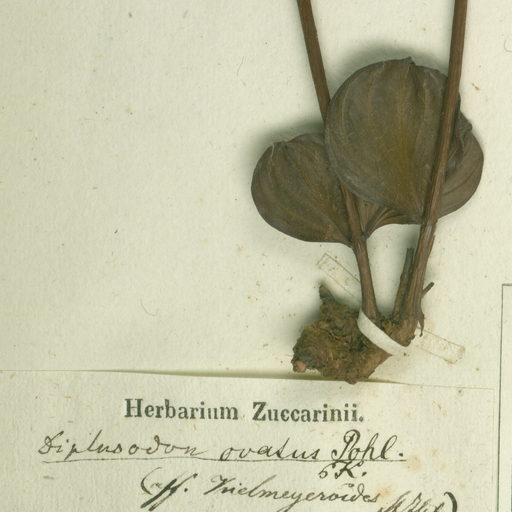 Herbarium Zuccarinii.
Diplusodon ovatus Pohl.
K.
(aff. Thielmeyeroides